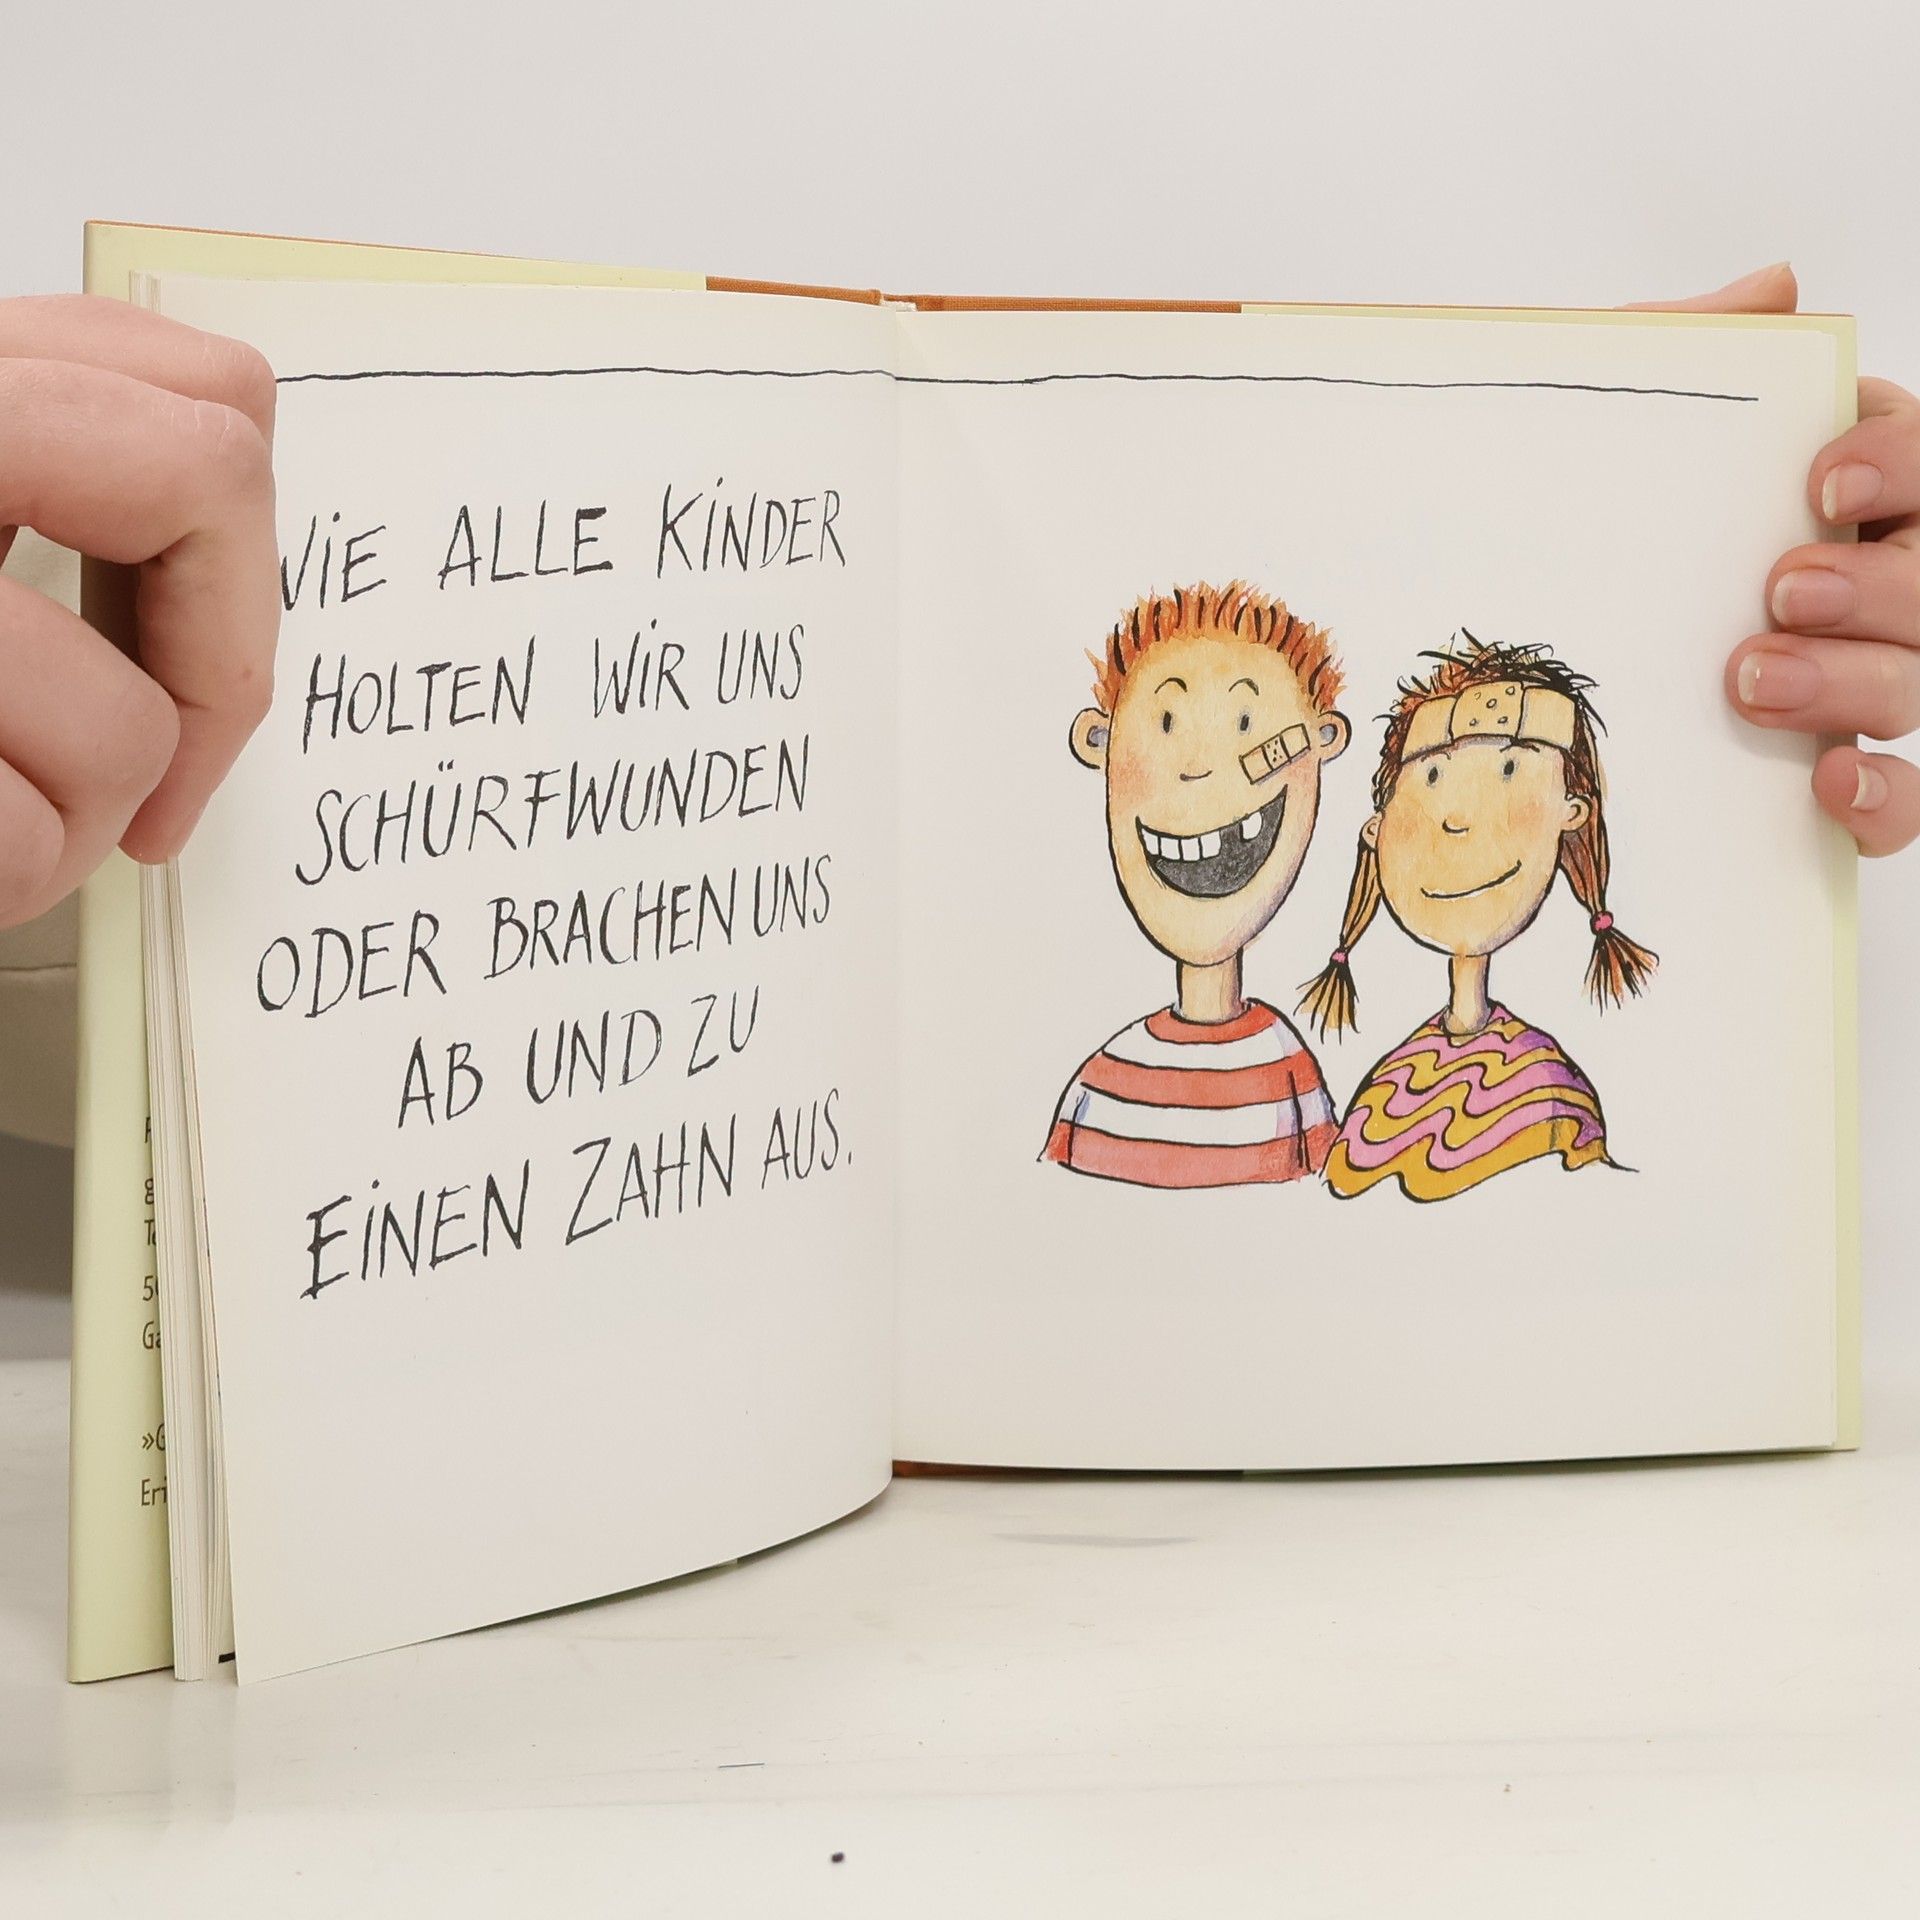 WiE ALLE KiNDER
HOLTEN WiR UNS
SCHÜRFWUNDEN
ODER BRACHEN UNS
AB UND ZU
EiNEN ZAHN AUS.